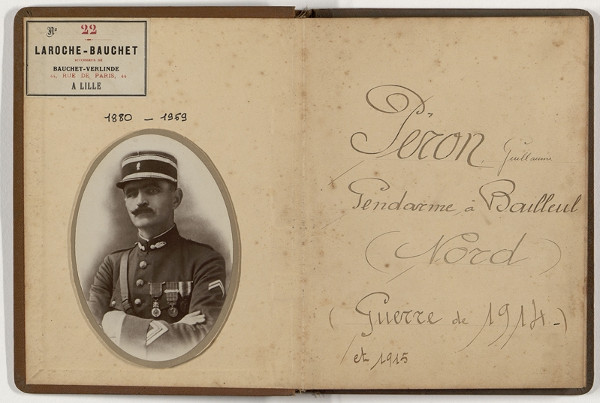 N° 22
LAROCHE-BAUCHET
BAUCHET-VERLINDE
RUE DE PARIS,
A LILLE
1880 - 1959
Péron Guillaume
Gendarme à Bailleul
(Nord)
(Guerre de 1914-)
et 1915